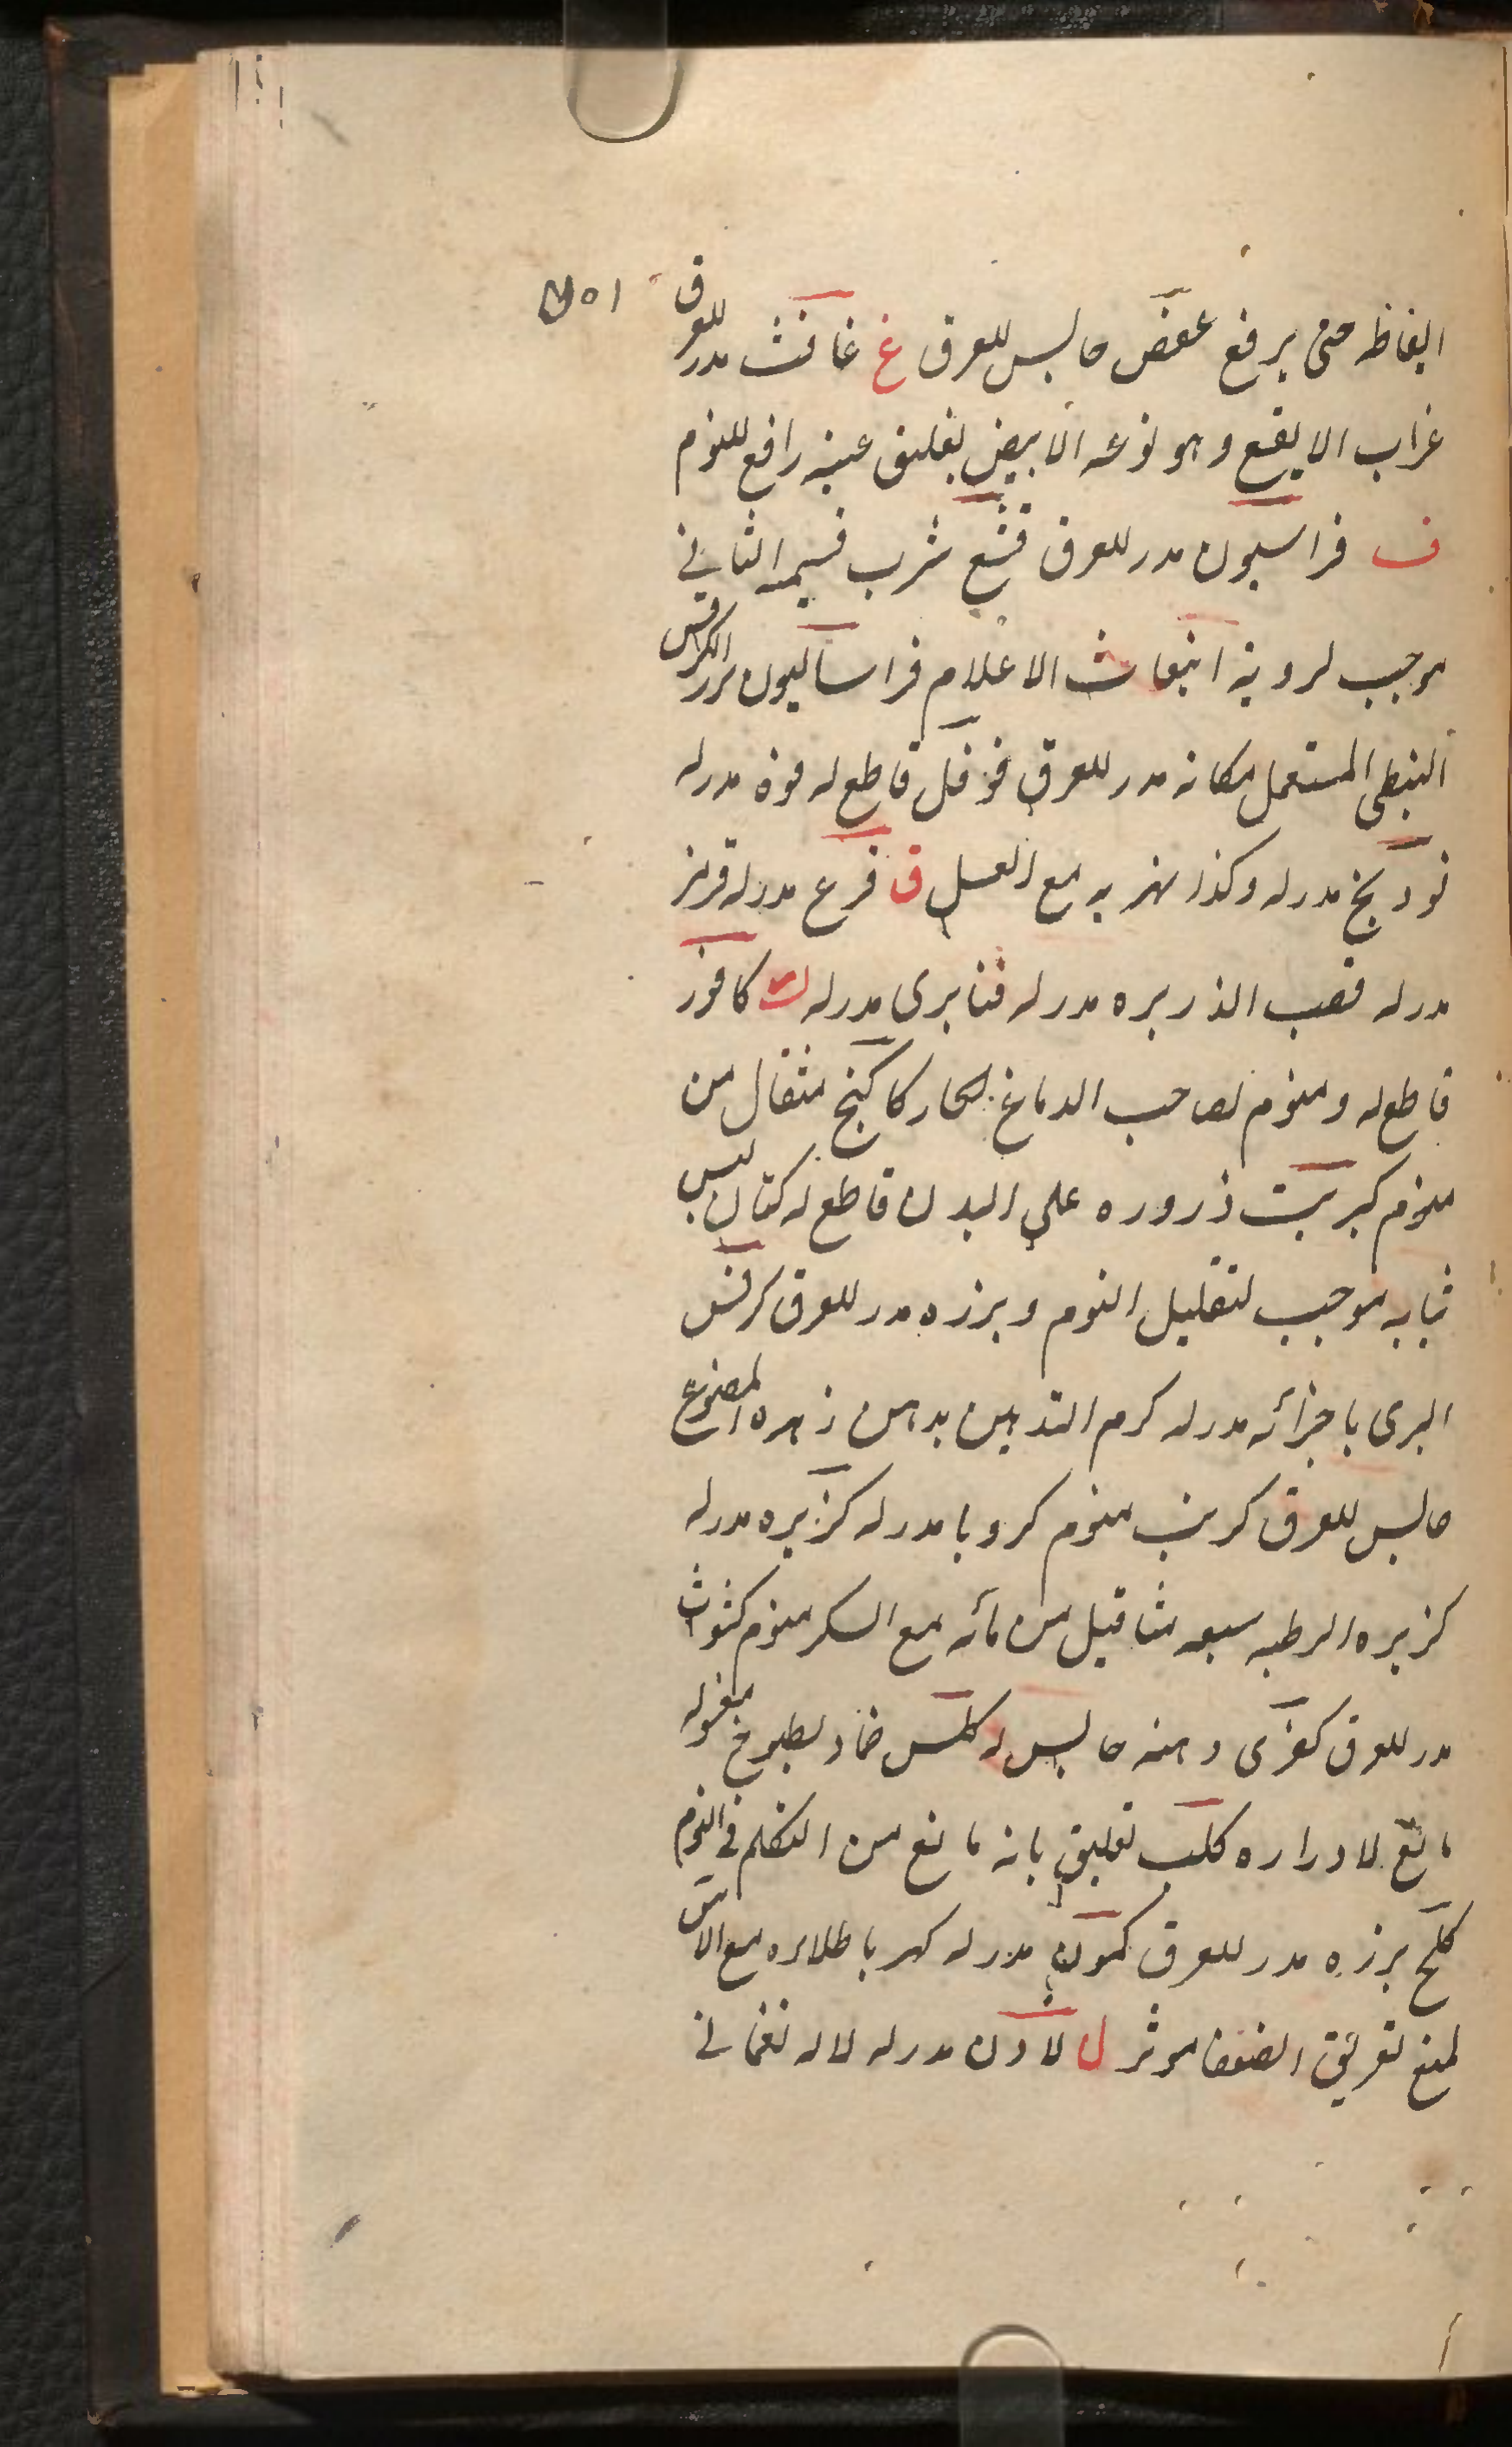 ايقاظه حتى يرفع عفص حابس للعرق غ غافث مدر للعرق
غراب الابقع وهو نوعه الابيض تعليق عينه رافع للنوم
ف فراسيون مدر للعرق شرب قسيمه الثاني
موجب لروية الاعلام فراساليون بزر الكرفس
النبطي المستعمل مكانه مدر للعرق فوفل قاطع له فوه مدر له
فودنج مدر له وكذا شربه مع العسل ق قرع مدر له
مدر له قصب الذريره مدر له قنابرى مدر له ك كافور
قاطع له ومنوم لصاحب الدماغ الحار كاكنج مثقال من
منوم كبريت ذروره على البدن قاطع له كتان لبس
ثيابه موجب لتقليل النوم وبزره مدر للعرق كرفس
البرى باجزائه مدر له كرم التدهين بدهن زهره المصنوع
حابس للعرق كرنب منوم كرويا مدر له كزبره مدر له
كزبره الرطبه سبعه مثاقيل من مائه مع السكر منوم كثوث
مدر للعرق كفرى دهنه حابس له كلس ضماد مطبوخ مغسوله
مانع لادراره كلب تعليق نابه مانع من التكلم في النوم
كلخ بزره مدر للعرق كمون مدر له كهربا طلائه مع الاس
لمنع تعريق الضعفا موثر ل لادن مدر له لاله نعماني